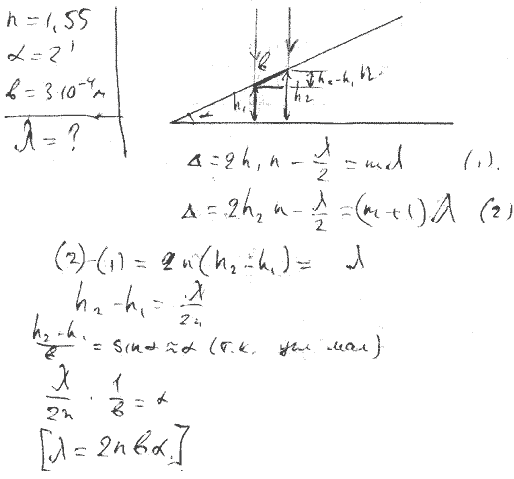 n = 1,55
α = 2'
b = 3·10⁻⁴ м
λ = ?
b
h₁
h₂
h₂-h₁
α
Δ = 2h₁n - λ/2 = mλ (1).
Δ = 2h₂n - λ/2 = (m+1)λ (2)
(2)-(1) = 2n(h₂-h₁) = λ
h₂-h₁ = λ/2n
(h₂-h₁)/b = sinα ≈ α (т.к. угл мал)
λ/2n · 1/b = α
[λ = 2nbα.]